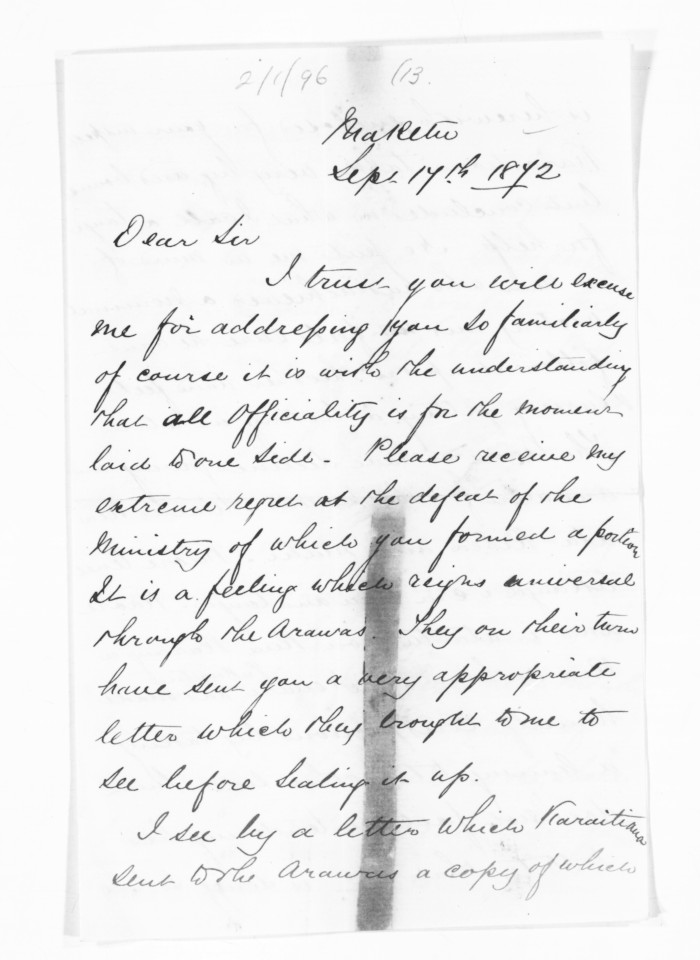 2/1/96 (13.
Maketu
Sept 17th 1872
Dear Sir
I trust you will excuse
me for addressing you so familiarly
of course it is with the understanding
that all Officiality is for the moment
laid to one side - Please receive my
extreme regret at the defeat of the
Ministry of which you formed a portion
It is a feeling which reigns universal
through the Arawas. They on their turn
have sent you a very appropriate
letter which they brought to me to
see before sealing it up.
I see by a letter which Karaitiana
sent to the Arawas a copy of which